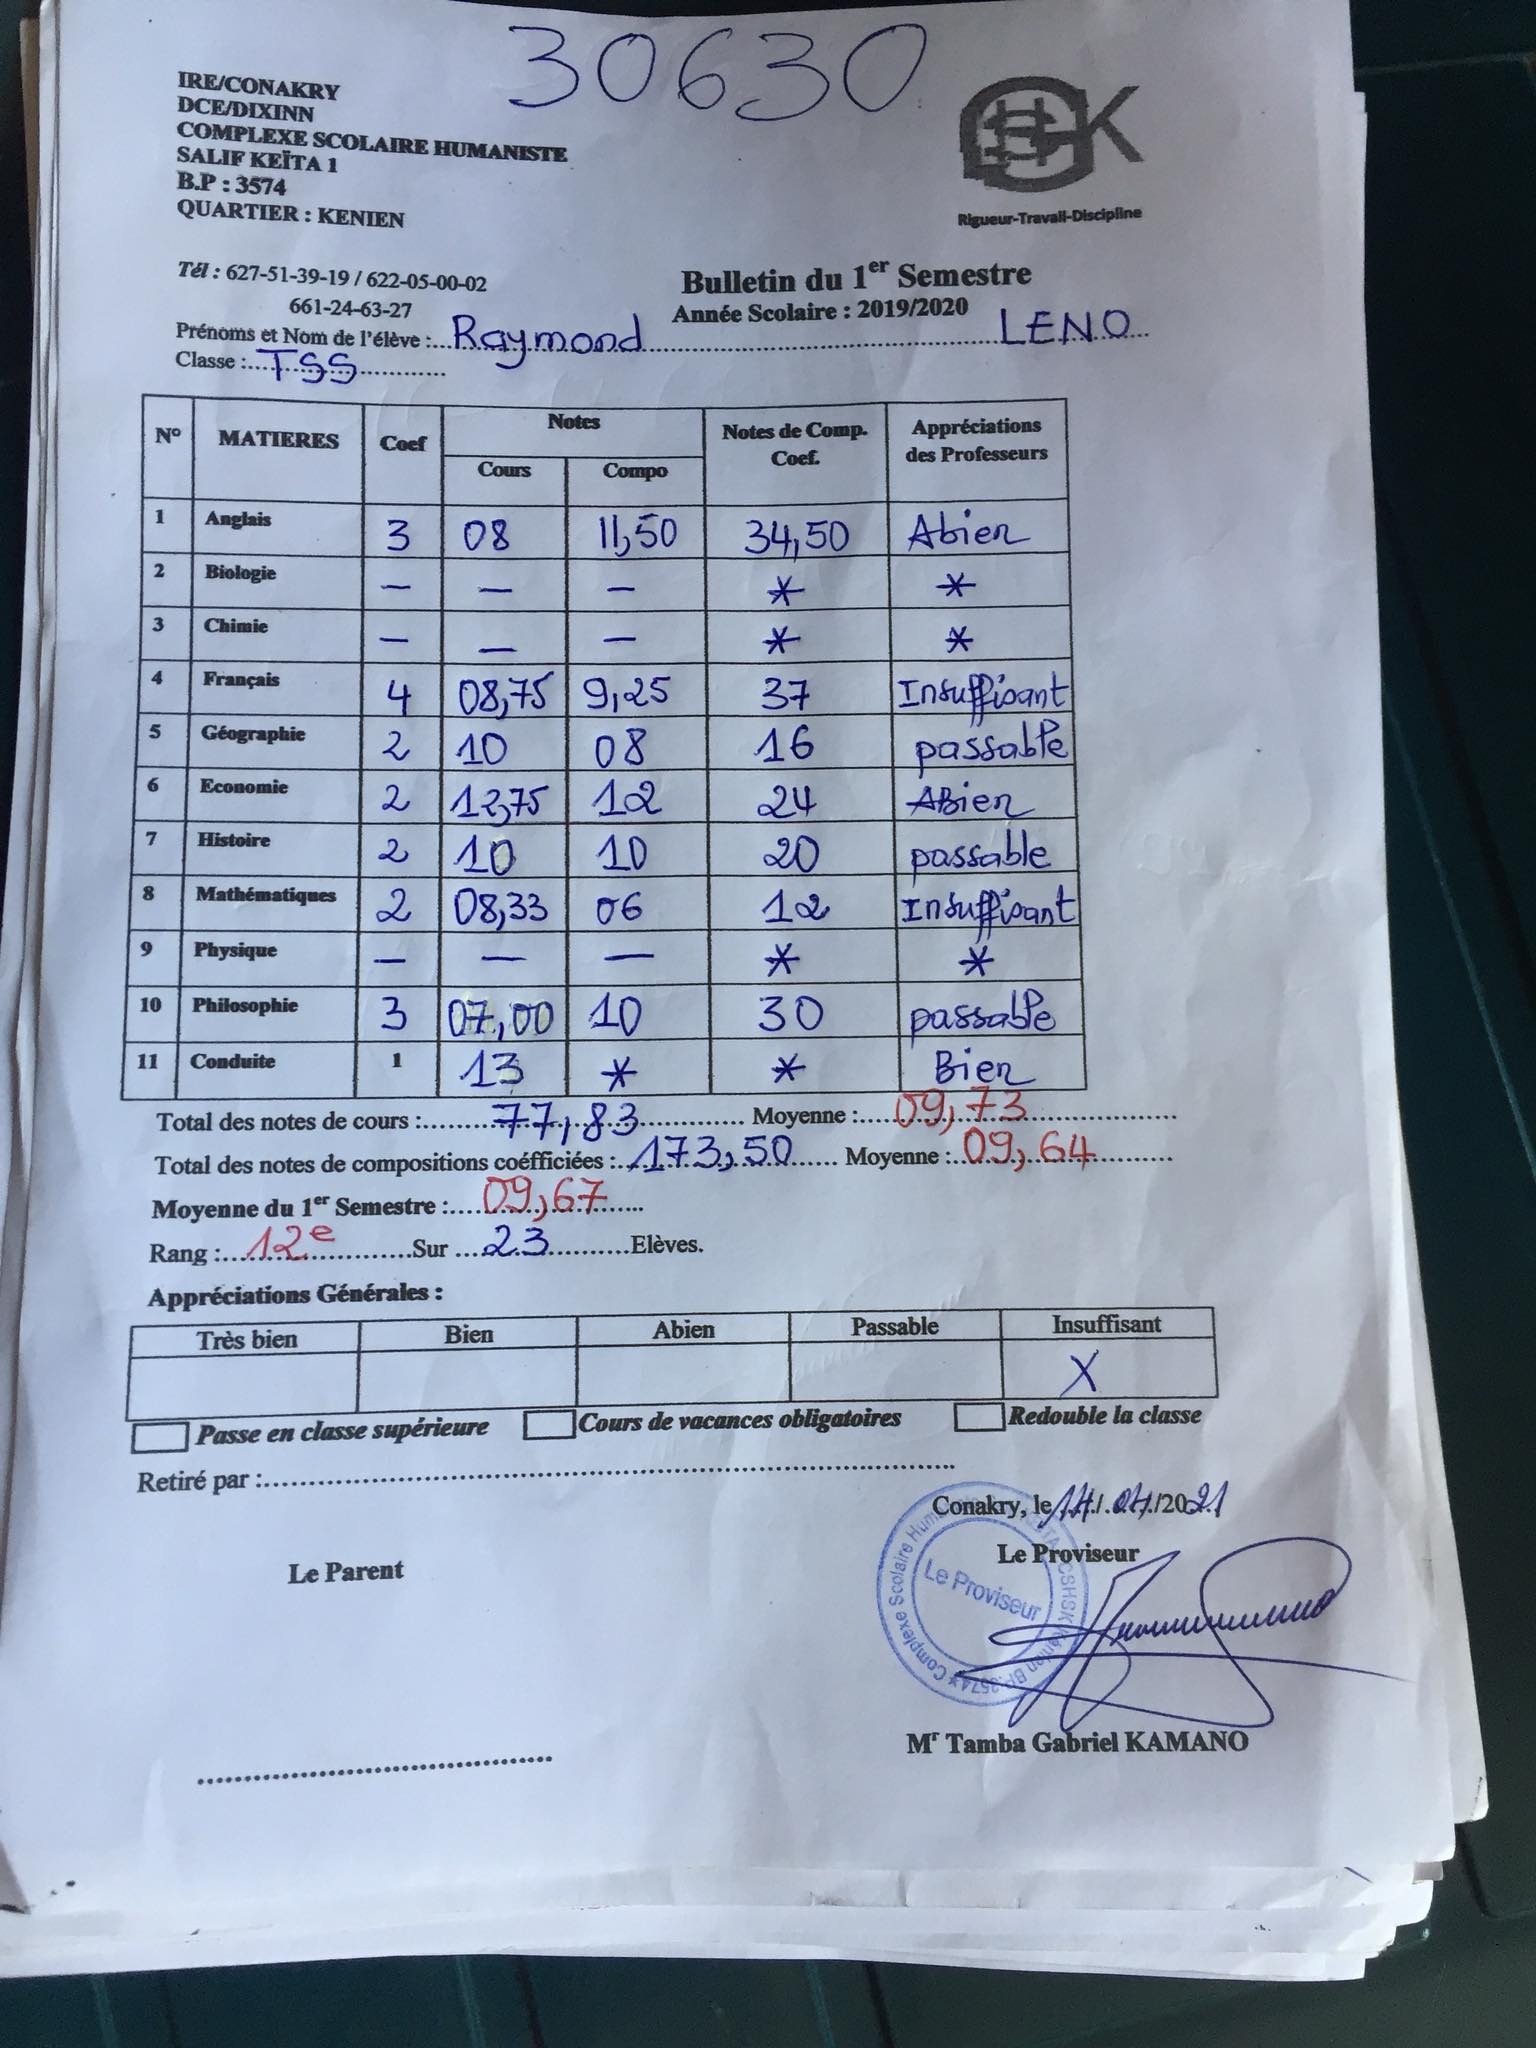 30630
IRE/CONAKRY
DCE/DIXINN
COMPLEXE SCOLAIRE HUMANISTE
SALIF KEÏTA 1
B.P : 3574
QUARTIER : KENIEN
Rigueur-Travail-Discipline
Tél : 627-51-39-19 / 622-05-00-02
661-24-63-27
Bulletin du 1er Semestre
Année Scolaire : 2019/2020
Prénoms et Nom de l'élève : Raymond LENO
Classe : TSS
N° MATIERES Coef Notes Notes de Comp. Coef. Appréciations des Professeurs
Cours Compo
1 Anglais 3 08 11,50 34,50 Abien
2 Biologie — — — * *
3 Chimie — — — * *
4 Français 4 08,75 9,25 37 Insuffisant
5 Géographie 2 10 08 16 passable
6 Economie 2 12,75 12 24 ABien
7 Histoire 2 10 10 20 passable
8 Mathématiques 2 08,33 06 12 Insuffisant
9 Physique — — — * *
10 Philosophie 3 07,00 10 30 passable
11 Conduite 1 13 * * Bien
Total des notes de cours : 77,83 Moyenne : 09,73
Total des notes de compositions coéfficiées : 173,50 Moyenne : 09,64
Moyenne du 1er Semestre : 09,67
Rang : 12e Sur 23 Elèves.
Appréciations Générales :
Très bien Bien Abien Passable Insuffisant
X
Passe en classe supérieure Cours de vacances obligatoires Redouble la classe
Retiré par :
Conakry, le 14/04/2021
Le Parent Le Proviseur
Le Proviseur
Complexe Scolaire CSHSK BP:3574
Mr Tamba Gabriel KAMANO